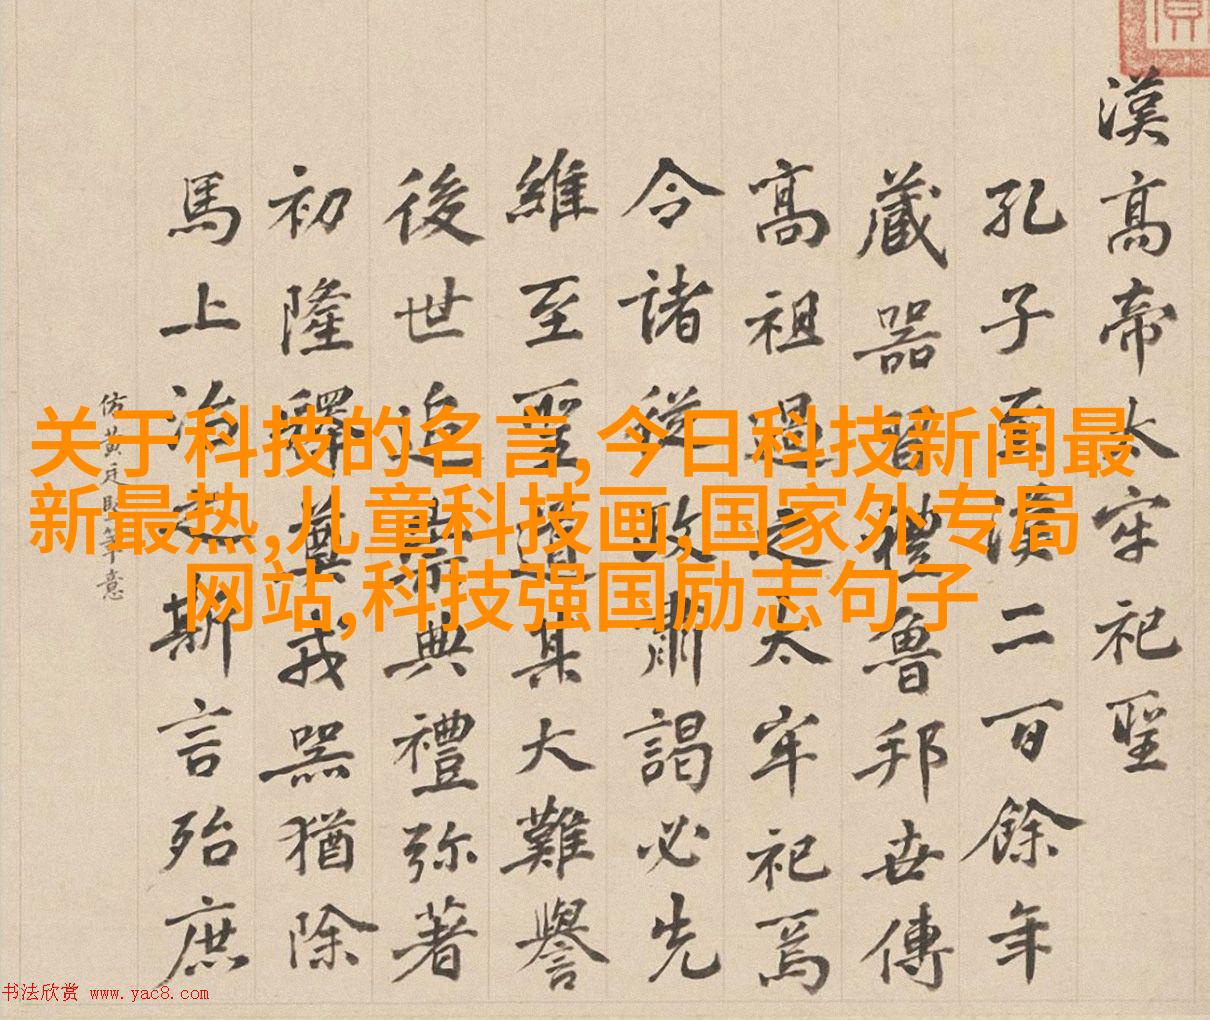 漢高帝太牢祀聖
孔子至漢二百餘年
藏器習禮魯邦世傳
高祖過之太牢祀焉
令諸從政肅謁必先
維至聖道其大難譽
後世追崇典禮弥著
初隆釋奠戎器猶除
馬上治之斯言殆庶
仿黃庭堅筆意
关于科技的名言,今日科技新闻最
新最热,儿童科技画,国家外专局
网站,科技强国励志句子
书法欣赏 www.yac8.com